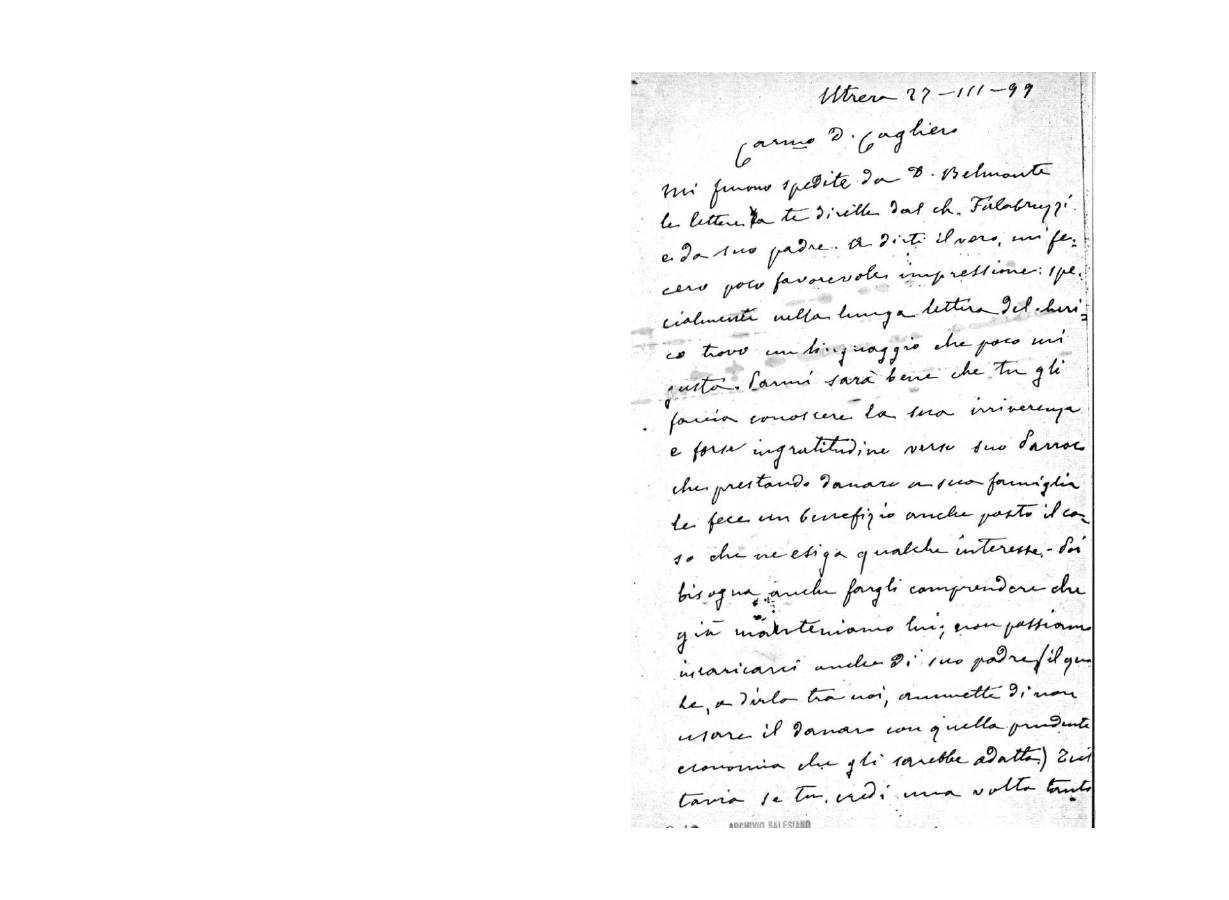 Utrera 27-III-99
Carmo D. Cagliero
Mi furono spedite da D. Belmonte
le lettere a te dirette dal ch. Falabruzzi
e da suo padre. A dirti il vero, mi fe-
cero poco favorevole impressione: spe-
cialmente nella lunga lettera del cheri-
co trovo un linguaggio che poco mi
gusta. Parmi sarà bene che tu gli
faccia conoscere la sua irriverenza
e forse ingratitudine verso suo Parroco
che prestando danaro a sua famiglia
le fece un benefizio anche posto il ca-
so che ne esiga qualche interesse. - Poi
bisogna anche fargli comprendere che
già manteniamo lui; non possiamo
incaricarci anche di suo padre (il qua
le, a dirla tra noi, ammette di non
usare il danaro con quella prudente
economia che gli sarebbe adatta) Tut
tavia se tu credi una volta tanto
ARCHIVIO SALESIANO